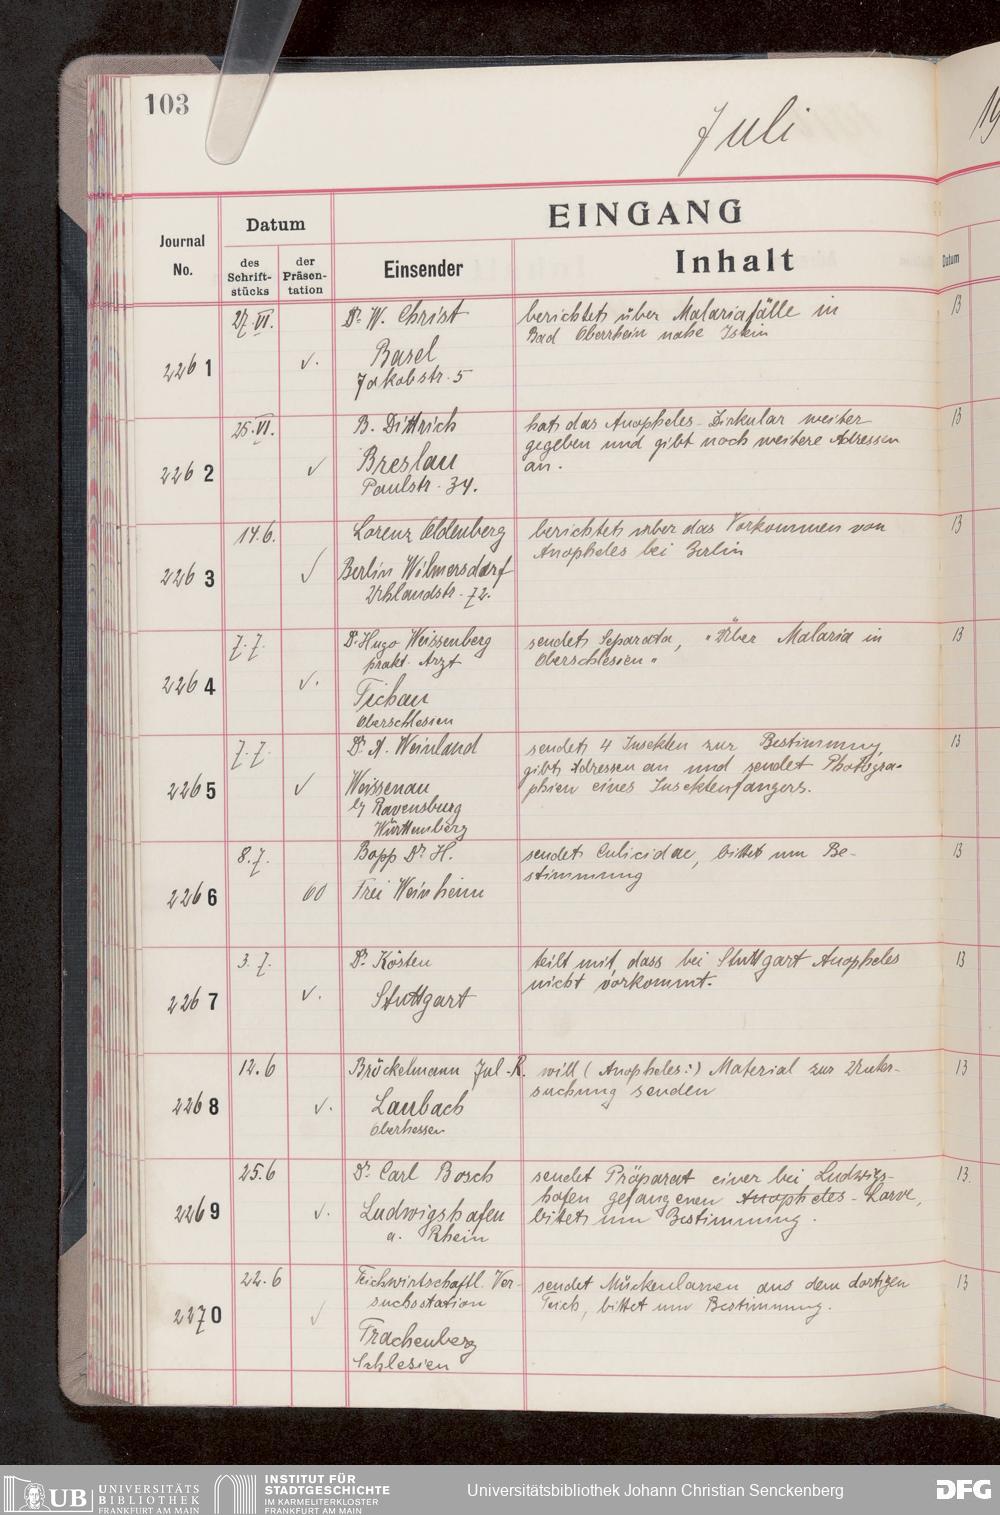 103
Juli
19
EINGANG
Journal
No.
Datum
des
Schrift-
stücks
der
Präsen-
tation
Einsender
Inhalt
Datum
2261
27. VI.
✓.
Dr. W. Christ
Basel
Jakobstr. 5
berichtet über Malariafälle in
Bad Oberrhein nahe Istein
13
2262
25. VI.
✓
B. Dittrich
Breslau
Paulstr. 34.
hat das Anopheles-Zirkular weiter
gegeben und gibt noch weitere Adressen
an.
13
2263
14.6.
✓
Lorenz Oldenberg
Berlin Wilmersdorf
Uhlandstr. 72.
berichtet über das Vorkommen von
Anopheles bei Berlin
13
2264
7.7.
✓.
Dr. Hugo Weissenberg
prakt. Arzt
Tichau
Oberschlesien
sendet Separata, "Über Malaria in
Oberschlesien"
13
2265
7.7.
✓
Dr. A. Weinland
Weissenau
b/ Ravensburg
Württemberg
sendet 4 Insekten zur Bestimmung,
gibt Adressen an und sendet Photogra-
phien eines Insektenfangers.
13
2266
8.7.
Bopp Dr. H.
Frei Weinheim
sendet Culicidae, bittet um Be-
stimmung
13
2267
3.7.
✓.
Dr. Kösten
Stuttgart
teilt mit, dass bei Stuttgart Anopheles
nicht vorkommt.
13
2268
12.6
✓.
Bröckelmann Jul.-R.
Laubach
Oberhessen
will (Anopheles:) Material zur Unter-
suchung senden
13
2269
25.6
✓.
Dr. Carl Bosch
Ludwigshafen
a. Rhein
sendet Präparat einer bei Ludwigs-
hafen gefangenen Anopheles-Larve,
bittet um Bestimmung.
13.
2270
22.6
✓
Teichwirtschaftl. Ver-
suchsstation
Trachenberg
Schlesien
sendet Mückenlarven aus dem dortigen
Teich, bittet um Bestimmung.
13
UB UNIVERSITÄTS
BIBLIOTHEK
FRANKFURT AM MAIN
INSTITUT FÜR
STADTGESCHICHTE
IM KARMELITERKLOSTER
FRANKFURT AM MAIN
Universitätsbibliothek Johann Christian Senckenberg
DFG